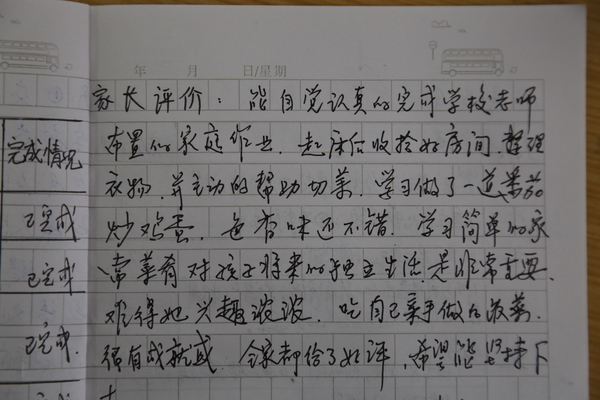 年 月 日/星期
家长评价：能自觉认真的完成学校老师
完成情况
布置的家庭作业.起床后收拾好房间.整理
衣物.并主动的帮助切菜.学习做了一道番茄
已完成
炒鸡蛋.色香味还不错.学习简单的家
已完成
常菜肴对孩子将来的独立生活.是非常重要.
难得她兴趣浓浓.吃自己亲手做的饭菜.
已完成.
很有成就感.全家都给了好评.希望能坚持下